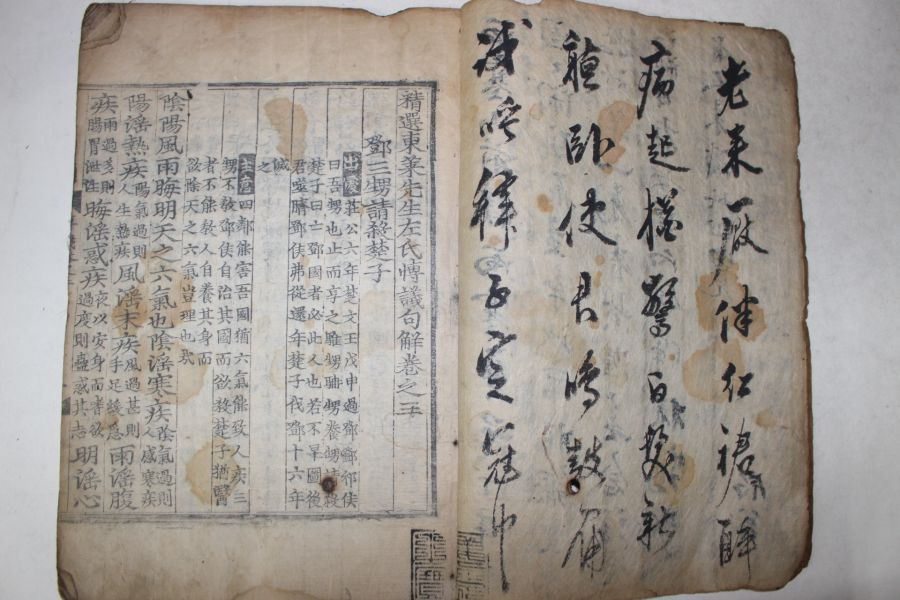 老來厭伴紅裙醉
病起猶驚白髮新
聽臥使君鳴鼓角
試呼稚子整冠巾
精選東萊先生左氏博議句解卷之三
鄧三甥請殺楚子
出處莊公六年楚文王戊申過鄧鄧祁侯
曰吾甥也止而享之騅甥聃甥養甥請殺
楚子曰亡鄧國者必此人也若不早圖後
君噬臍鄧侯弗從還年楚子伐鄧十六年
滅之
主意四鄰能害吾國猶六氣能致人疾三
甥不敎鄧侯自治其國而欲殺楚子猶醫
者不能敎人自養其身而
欲除天之六氣豈理也哉
陰陽風雨晦明天之六氣也陰淫寒疾陰氣過則人感寒疾
陽淫熱疾陽氣過則人生熱疾風淫末疾風過甚則手足緩急雨淫腹
疾雨過多則腸胃泄注晦淫惑疾夜以安身而耆欲過度則蠱惑其志明淫心